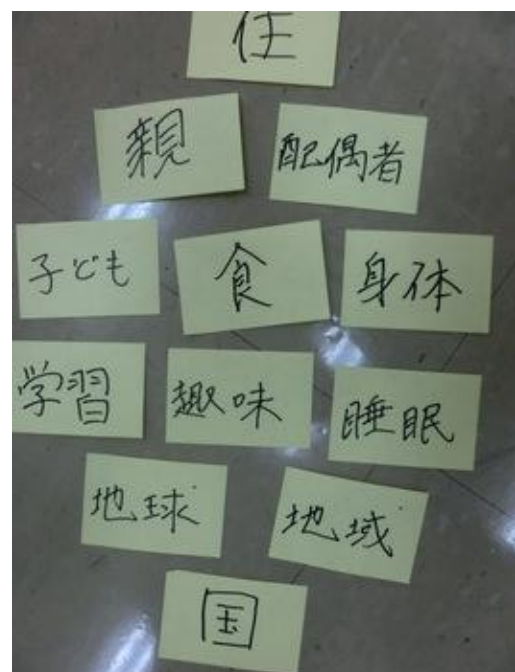 住
親 配偶者
子ども 食 身体
学習 趣味 睡眠
地球 地域
国